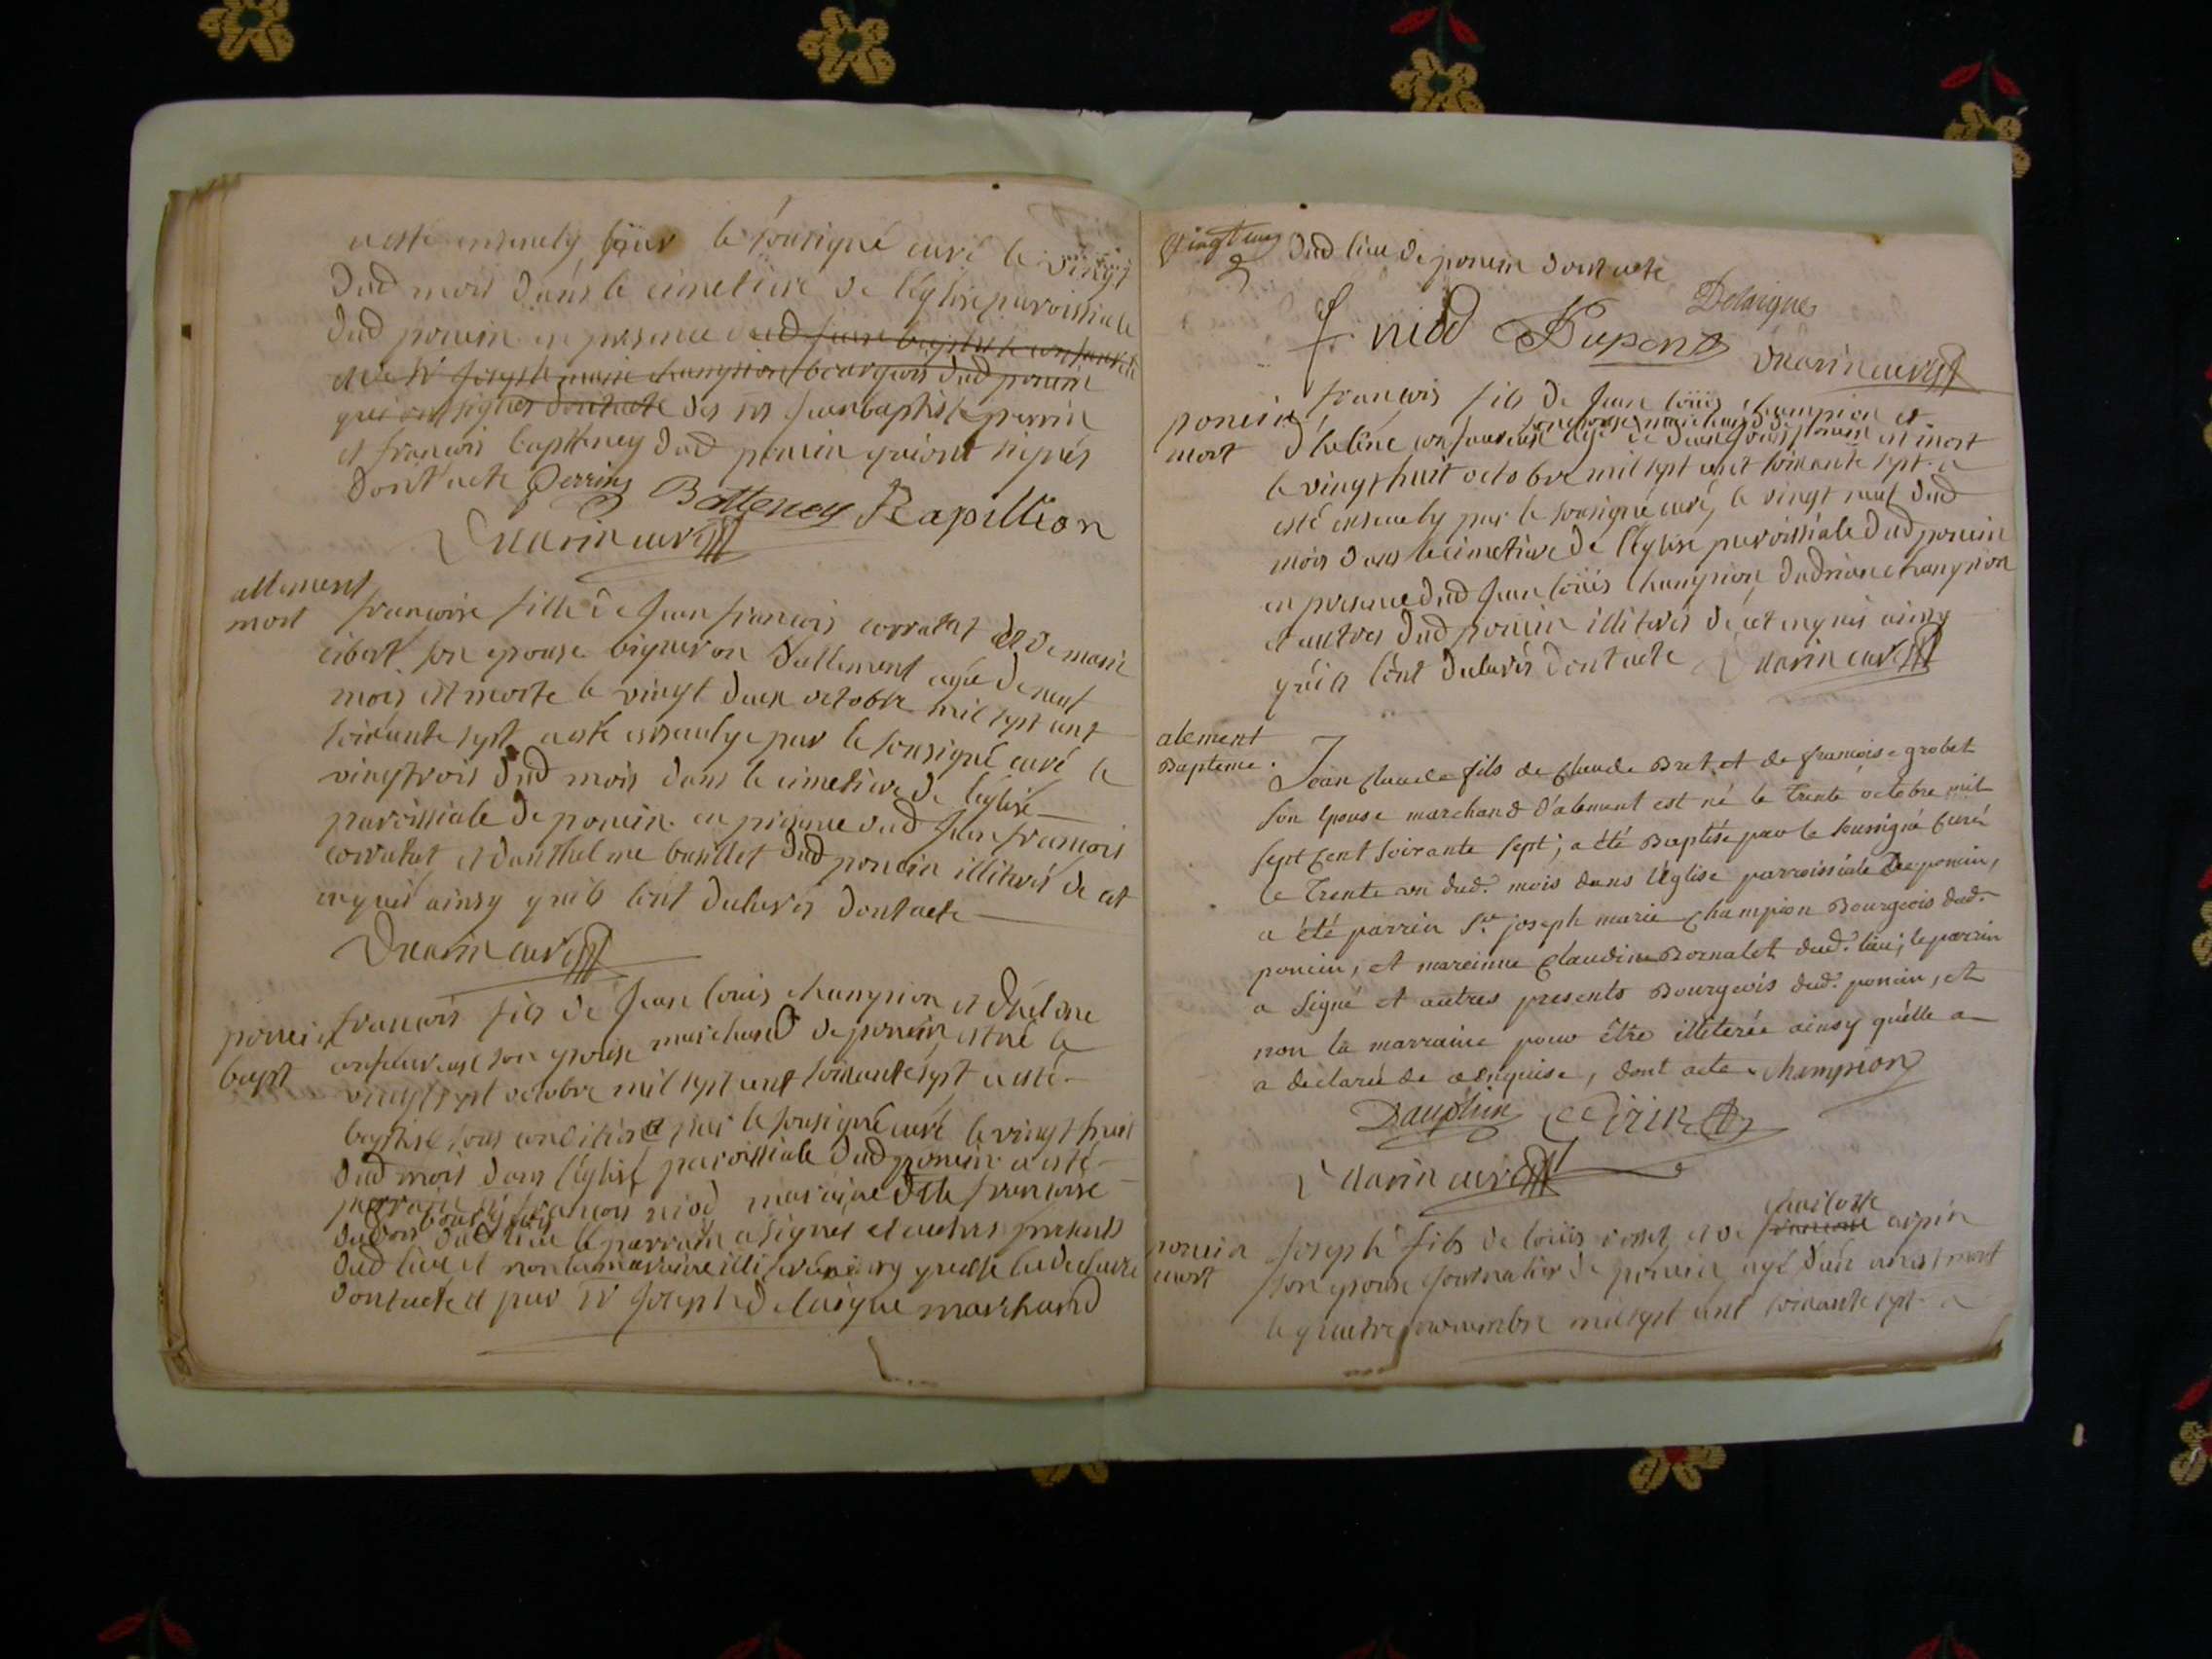 a esté ensevely par le sousigné curé le vingt
dud mois dans le cimetiere de l'églisse parroissiale
dud poncin en presence dud jean baptiste
et de sr joseph marie champion bourgeois dud poncin
qui ont signés dont acte des srs jean baptiste perrin
et françois battheney dud poncin qui ont signés
dont acte Perrin Batteney Rapillion
Duarin curé
allement
mort
francoise fille de jean francois corratet et de marie
cibert son epouse vigneron d'allement agée de neuf
mois est morte le vingt deux octobre mil sept cent
soixante sept a esté ensevelye par le sousigné curé le
vingtrois dud mois dans le cimetiere de l'églisse
parroissiale de poncin en presence dud jean francois
corratet et d'anthelme dud poncin illiterés de cet
enquis ainsy qu'ils l'ont declarés dont acte
Duarin curé
poncin
bapt
francois fils de jean louis champion et d'helene
son epouse marchand de poncin est né le
vingt sept octobre mil sept cent soixante sept a esté
baptisé sous condition par le sousigné curé le vingt huit
dud mois dans l'églisse parroissiale dud poncin a esté
parrain sr francois niod maraine dlle francoise
dupont bourgeois dud lieu le parrain a signé et autres presents
dud lieu et non la maraine illiterée ainsy qu'elle l'a declaré
dont acte et par sr joseph delaigue marchand
vingt un
dud lieu de poncin dont acte
Delaigue
f niod Dupont Duarin curé
poncin
mort
francois fils de jean louis champion et
d'helene son epouse marchand de poncin agé de deux jours est mort
le vingt huit octobre mil sept cent soixante sept a
esté ensevely par le sousigné curé le vingt neuf dud
mois dans le cimetiere de l'églisse parroissiale dud poncin
en presence dud jean louis champion, champion
et autres dud poncin illiterés de cet enquis ainsy
qu'ils l'ont declarés dont acte Duarin curé
alement
Bapteme.
Jean Claude fils de Claude Bret et de francoise grobet
son epouse marchand d'alement est né le trente octobre mil
sept cent soixante sept; a été Baptisé par le soussigné Curé
le trente un dud. mois dans l'église parroissiale de poncin,
a été parrein sr. joseph marie Champion Bourgeois dud.
poncin, et mareinne Claudine Bornalet dud. lieu; le parrin
a signé et autres presents Bourgeois dud. poncin, et
non la marraine pour être illeterée ainsy qu'elle a
a declarée de enquise, dont acte. Champion
Dauphin
Duarin curé
poncin
mort
joseph fils de louis et de francoise claudoise arpin
son epouse journalier de poncin agé d'un an est mort
le quatre novembre mil sept cent soixante sept a